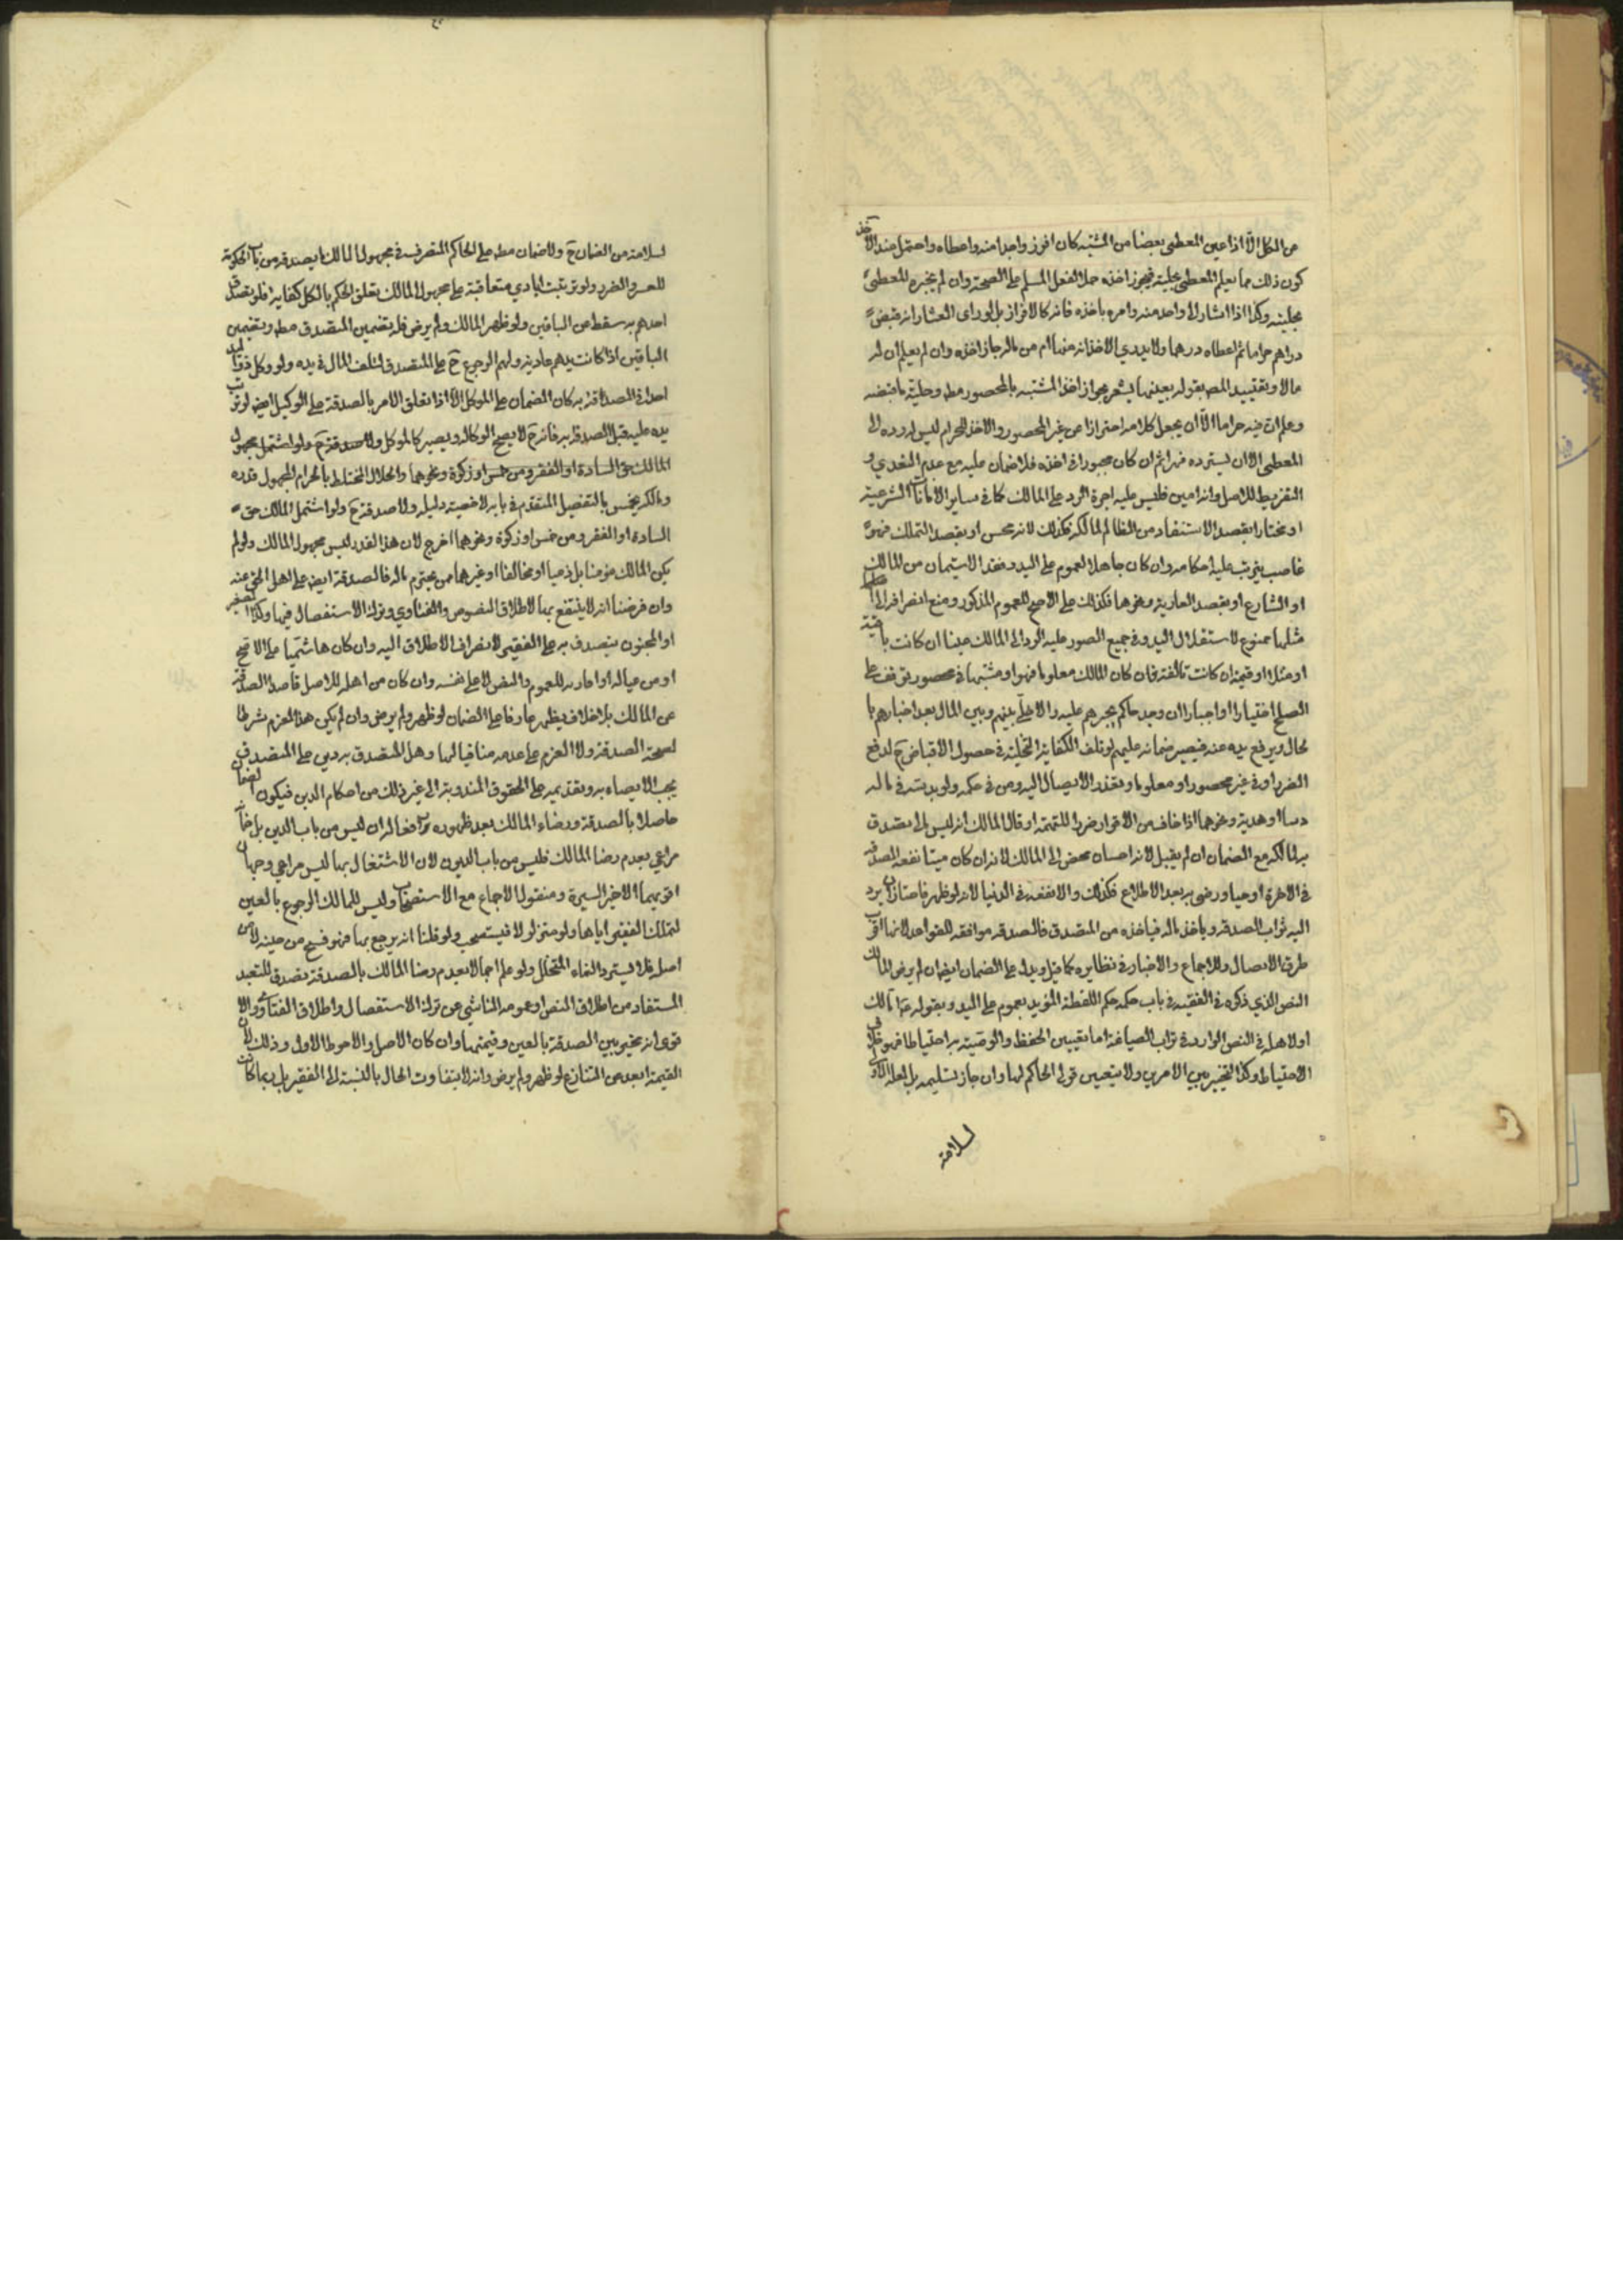 عن الكل الا اذا عين المعطى بعضا من المشتبه كان افرز واحدا منه واعطاه واحتمل عند الآخذ
كون ذلك مما يعلم المعطى بحليته فيجوز اخذه حملا لفعل المسلم على الصحة وان لم يخبره المعطى
بحليته وكذا اذا اشار الى واحد منه وامره باخذه فانه كالافراز بل لو راى العشار انه قبض
دراهم حراما ثم اعطاه درهما ولا يدري الاخذ انه منها ام من ماله جاز اخذه وان لم يعلم ان له
مالا وتقييد المص بقوله بعينها يشعر بجواز اخذ المشتبه بالمحصور مط وحلية ما قبضه
وعلم ان فيه حراما الا ان يجعل كلامه احترازا عن غير المحصور والاخذ للحرام ليس له رده الى
المعطى الا ان يسترده قهرا ثم ان كان مجبورا في اخذه فلا ضمان عليه مع عدم التعدي و
التفريط للاصل وانه امين فليس عليه اجرة الرد على المالك كما في ساير الامانات الشرعية
او مختارا بقصد الاستنقاذ من الظالم لمالكه فكذلك لانه محسن او بقصد التملك فهو
غاصب يترتب عليه احكامه وان كان جاهلا لعموم على اليد وفقد الاستيمان من المالك
او الشارع او بقصد العارية ونحوها فكذلك على الاصح للعموم المذكور ومنع انصرافه الى
مثلها ممنوع لاستقلال اليد وفي جميع الصور عليه الرد الى المالك عينا ان كانت باقية
او مثلا او قيمة ان كانت تالفة فان كان المالك معلوما فهو او مشتبها في محصور توقف على
الصلح اختيارا او اجبارا ان وجد حاكم يجبرهم عليه والا خلى بينهم وبين المال بعد اخبارهم با
لحال ويرفع يده عنه فيصير ضمانه عليهم لو تلف لكفاية التخلية في حصول الاقباض ح لدفع
الضرر او في غير محصور او معلوما وتعذر الايصال اليه ومن في حكمه ولو بدسه في ماله
دسا او هدية ونحوهما اذا خاف من الاقرار ضررا للتهمة او قال المالك انه ليس لي تصدق
به لمالكه مع الضمان ان لم يقبل لانه احسان محض الى المالك لانه ان كان ميتا نفعه الصدقة
في الاخرة او حيا ورضى به بعد الاطلاع فكذلك والا نفعه في الدنيا لانه لو ظهر فاحتاز ان يرد
اليه ثواب الصدقة وياخذ ماله فياخذه من المتصدق فالصدقة موافقة للقواعد لانها اقرب
طرق الايصال وللاجماع والاخبار في نظايره كما قيل ويدل على الضمان ايضا ان لم يرض المالك
النص الذي ذكره في الفقيه في باب حكمه حكم اللقطة المؤيد بعموم على اليد وبقوله
او لاهله في النص الوارد في تراب الصياغة اما تعيين الحفظ والوصية به احتياطا فهو خلاف
الاحتياط وكذا التخيير بين الامرين ولا يتعين تولى الحاكم لها وان جاز تسليمه بل لعله الاولى
لسلامته
لسلامته من الضمان ح ولا ضمان مط على الحاكم المتصرف في مجهول المالك بما يصدقه من باب الحكومة
للعسر والضرر ولو ترتبت ايادي متعاقبة على مجهول المالك تعلق الحكم بالكل كفاية فلو تصدق
احدهم به سقط عن الباقين ولو ظهر المالك ولم يرض فله تضمين المتصدق مط وتضمين
الباقين اذا كانت يدهم عادية ولهم الرجوع ح على المتصدق لتلف المال في يده ولو وكل ذو اليد
احدا في الصدقة به كان الضمان على الموكل الا اذا تعلق الامر بالصدقة على الوكيل ايضا لو ترتب
يده عليه قبل الصدقة به فانه ح لا يصح الوكالة ويصير كالموكل ولا صدقة ح ولو اشتمل مجهول
المالك حق السادة او الفقراء من خمس او زكوة ونحوهما والحلال المختلط بالحرام المجهول قدره
ومالكه يخمس بالتفصيل المتقدم في بابه لاخصية دليله ولا صدقة ح ولو اشتمل المالك حق
السادة او الفقراء من خمس او زكوة ونحوهما اخرج لان هذا القدر ليس مجهول المالك ولو لم
يكن المالك مؤمنا بل ذميا او مخالفا او غيرهما ممن يحترم ماله فالصدقة ايضا على اهل الحق عنه
وان فرضنا انه لا ينتفع بها لاطلاق النصوص والفتاوي وترك الاستفصال فيها وكذا الصغير
او المجنون يتصدق به على الفقير لانصراف الاطلاق اليه وان كان هاشميا على الاصح
او من عياله او اقاربه للعموم والنص لا على نفسه وان كان من اهله للاصل قاصدا الصدقة
عن المالك بلا خلاف يظهر عازما على الضمان لو ظهر ولم يرض وان لم يكن هذا العزم شرطا
لصحة الصدقة ولا العزم على عدمه منافيا لها وهل المتصدق به دين على المتصدق
يجب الايصاء به وتقديمه على الحقوق المندوبة الى غير ذلك من احكام الدين فيكون الضمان
حاصلا بالصدقة ورضاء المالك بعد ظهوره رافعا له ان ليس من باب الدين بل
مراعى بعدم رضا المالك فليس من باب الديون لان الاشتغال بها ليس مراعى وجهان
اقويهما الاخير للسيرة ومنقول الاجماع مع الاستصحاب وليس للمالك الرجوع بالعين
لتملك الفقير اياها ولو متزلزلا فيستصحب ولو قلنا انه يرجع بها فهو فسخ من حينه لا من
اصله فلا يسترد النماء المتخلل ولو علم اجمالا بعدم رضا المالك بالصدقة تصدق للتعبد
المستفاد من اطلاق النص او عمومه الناشي عن ترك الاستفصال واطلاق الفتاوى والا
قوى انه مخير بين الصدقة بالعين وقيمتها وان كان الاصل والاحوط الاول وذلك لان
القيمة ابعد عن التنازع لو ظهر ولم يرض وانه لا يتفاوت الحال بالنسبة الى الفقير بل ربما كانت